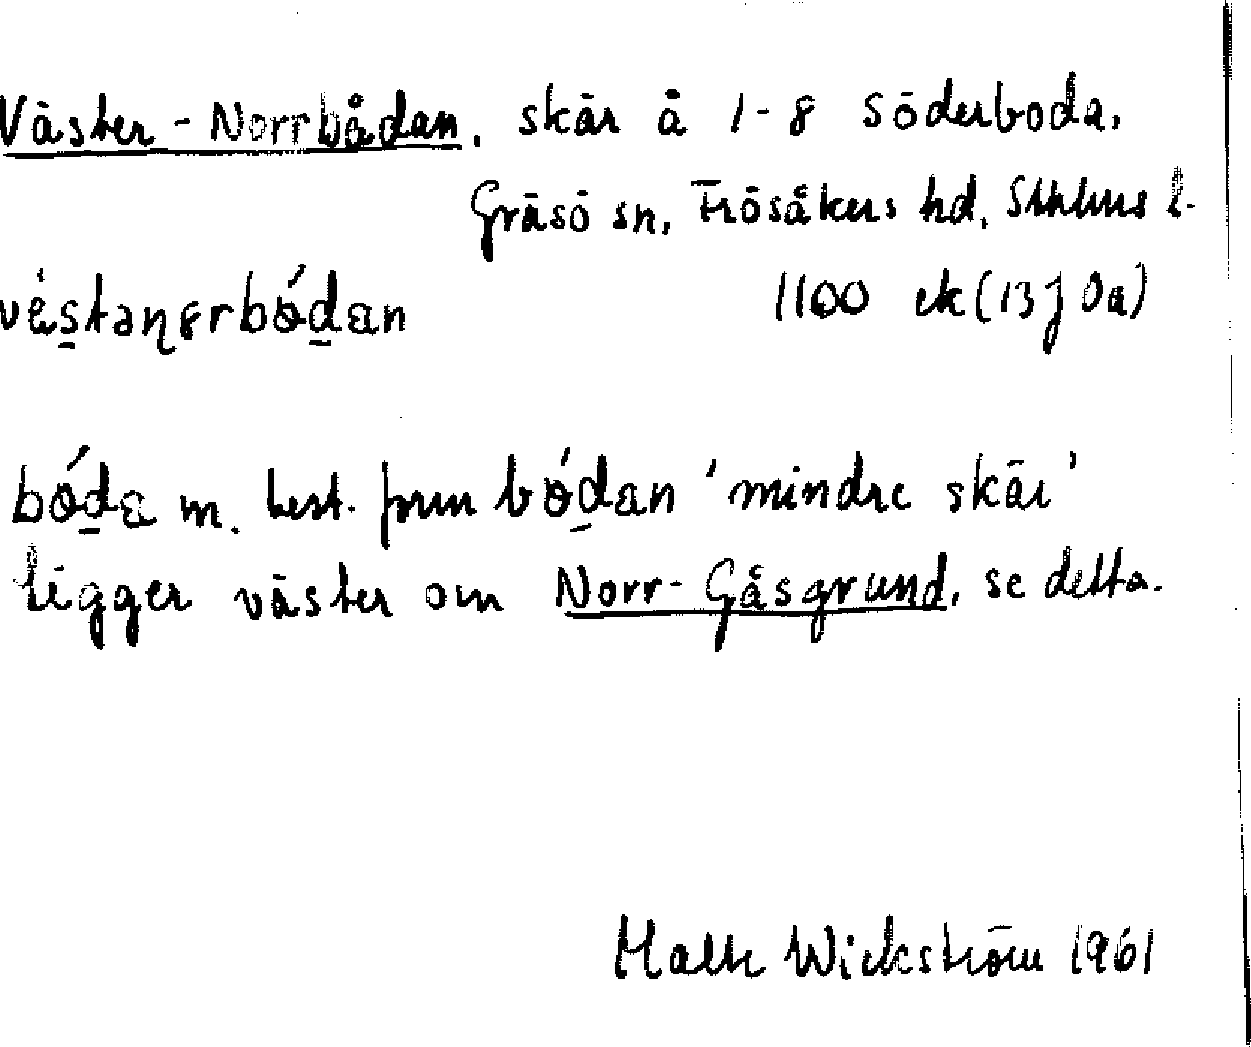 Väster-Norrbådan, skär å 1-8 Söderboda,
Gräsö sn, Frösåkers hd, Sthlms l.
1100 ek (13 j 0a)
båda m. best. form bådan 'mindre skär'
ligger väster om Norr-Gåsgrund, se detta.
Wickström 1961